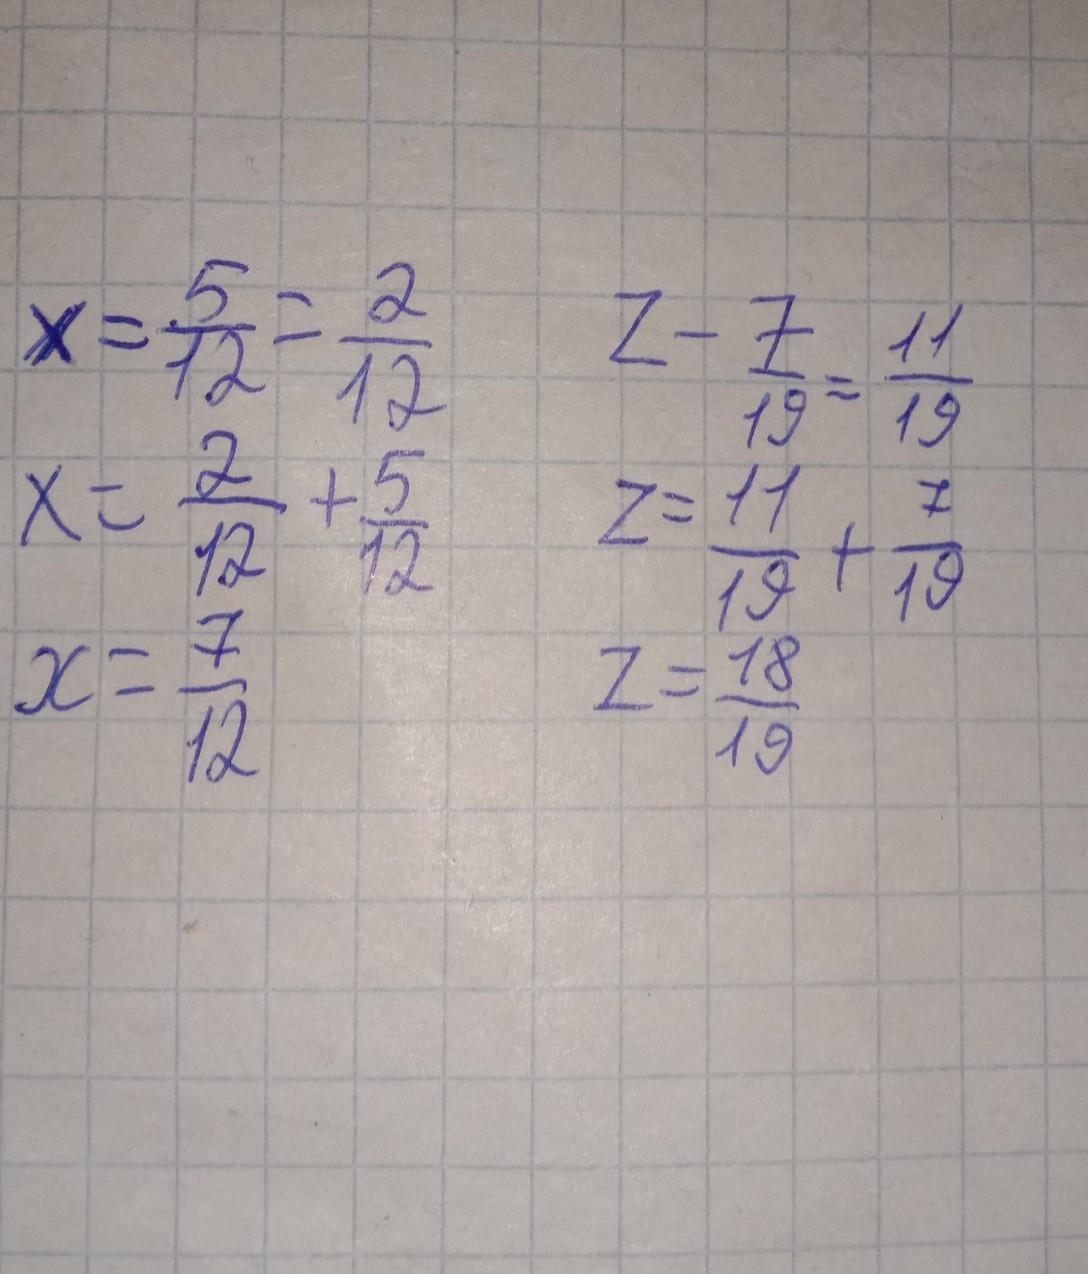 x = 5/12 = 2/12
x = 2/12 + 5/12
x = 7/12
z - 7/19 = 11/19
z = 11/19 + 7/19
z = 18/19